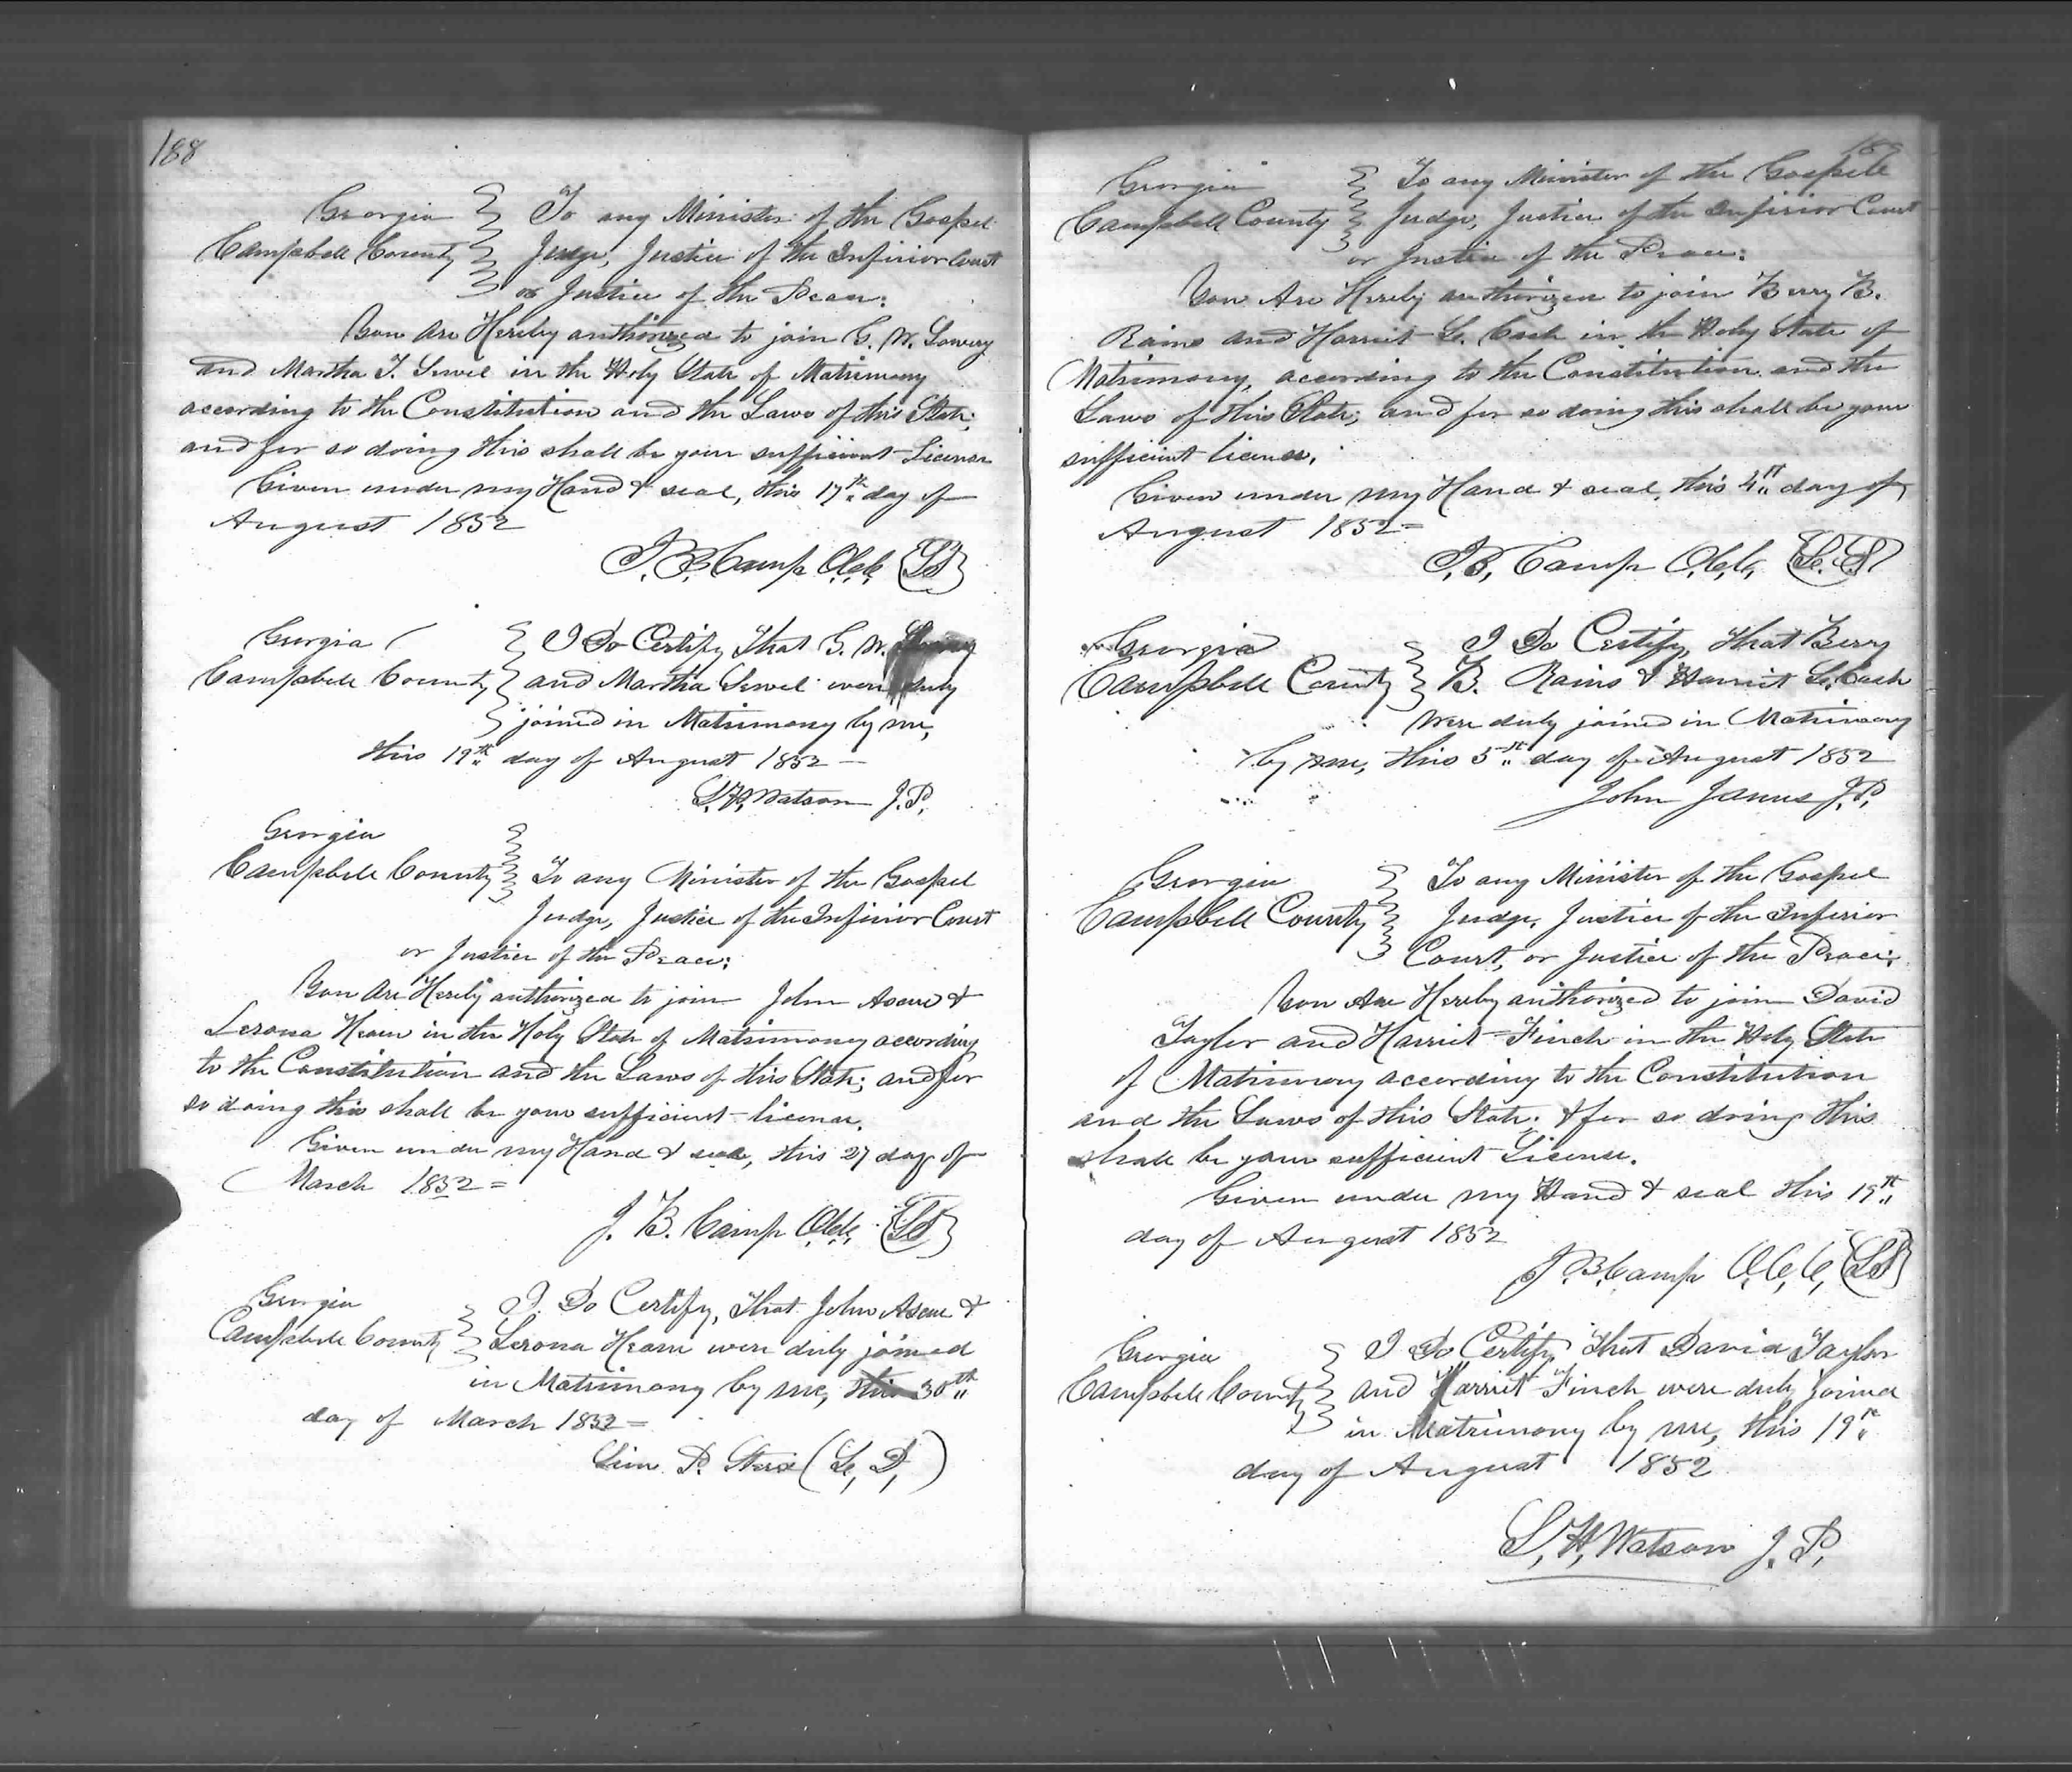 188
Georgia To any Minister of the Gospel
Campbell County Judge, Justice of the Inferior Court
or Justice of the Peace:
You are Hereby authorized to join G. W. Lowery
and Martha T. Sewel in the Holy State of Matrimony
according to the Constitution and the Laws of this State;
and for so doing this shall be your sufficient License
Given under my Hand & seal, this 17th day of
August 1852
J. B. Camp C.C.O. (LS)
Georgia I Do Certify That G. W.
Campbell County and Martha Sewel were duly
joined in Matrimony by me,
this 19th day of August 1852
L. H. Watson J.P.
Georgia
Campbell County To any Minister of the Gospel
Judge, Justice of the Inferior Court
or Justice of the Peace:
You Are Hereby authorized to join John &
Hearn in the Holy State of Matrimony according
to the Constitution and the Laws of this State; and for
so doing this shall be your sufficient license.
Given under my Hand & seal, this 27 day of
March 1852 =
J. B. Camp (LS)
Georgia I Do Certify, That John &
Hearn were duly joined
in Matrimony by me, this 30th
day of March 1852 =
189
Georgia To any Minister of the Gospele
Campbell County Judge, Justice of the Inferior Court
or Justice of the Peace:
You Are Hereby authorized to join Berry B.
Rains and Harriet L. Cash in the Holy State of
Matrimony, according to the Constitution and the
Laws of this State; and for so doing this shall be your
sufficient license.
Given under my Hand & seal, this 4th day of
August 1852 =
J. B. Camp (L.S.)
Georgia I Do Certify That Berry
Campbell County B. Rains & Harriet L. Cash
were duly joined in Matrimony
by me, this 5th day of August 1852
John James J.P.
Georgia To any Minister of the Gospel
Campbell County Judge, Justice of the Inferior
Court, or Justice of the Peace:
You Are Hereby authorized to join David
Taylor and Harriet Finch in the Holy State
of Matrimony according to the Constitution
and the Laws of this State; & for so doing this
shall be your sufficient License.
Given under my Hand & seal this 19th
day of August 1852
J. B. Camp (LS)
Georgia I Do Certify That David Taylor
Campbell County and Harriet Finch were duly joined
in Matrimony by me, this 19th
day of August 1852
L. H. Watson J. P.